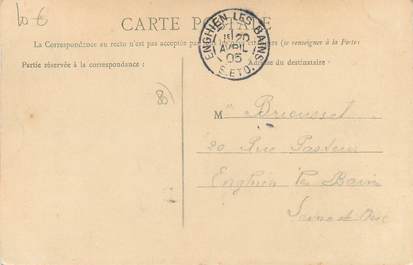 10 €
CARTE POSTALE
La Correspondance au recto n'est pas acceptée par (se renseigner à la Poste)
ENGHIEN LES BAINS
20
AVRIL
05
S. ET O.
Partie réservée à la correspondance : Adresse du destinataire :
M
20 Rue Pasteur
Enghien les Bains
Seine et Oise